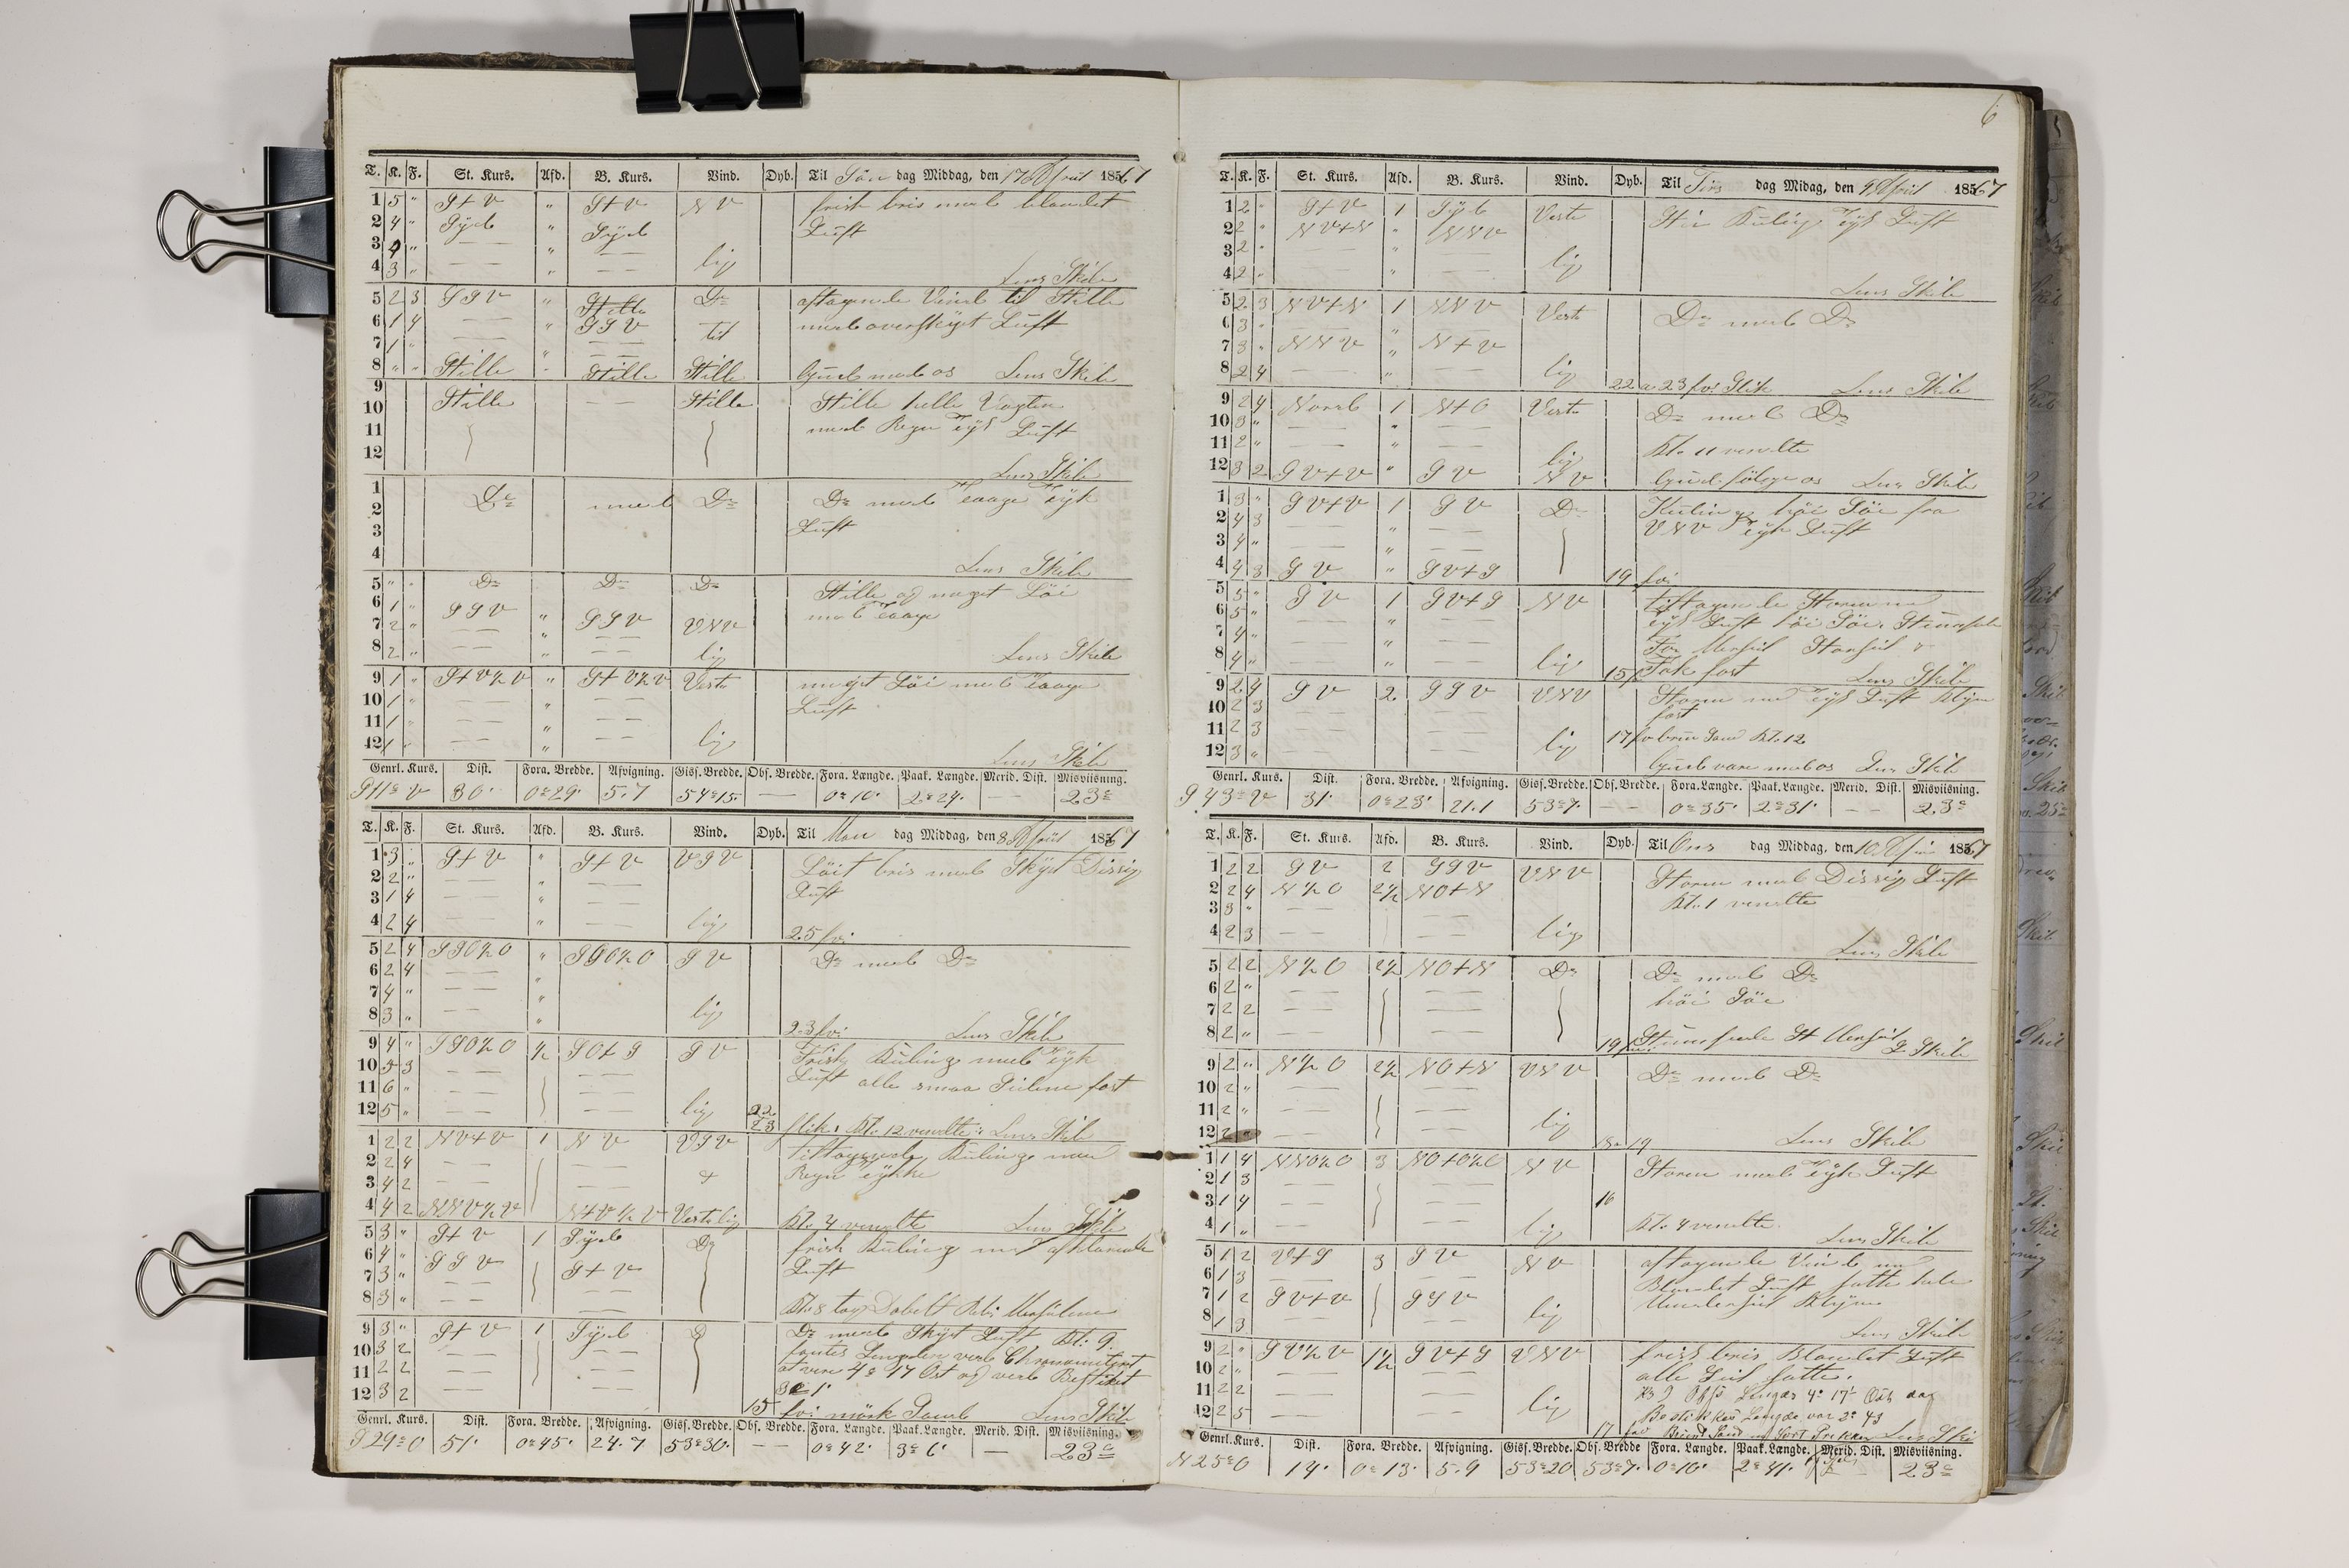 6
T. K. F. St. Kurs. Afd. B. Kurs. Vind. Dyb. Til Søn dag Middag, den April 1867
1 5 " S+V " S+V NV frisk bris med blandet
2 4 " Syd " Syd Luft
3 4 " — — " — —
4 3 " — — " — — lig Lens Skib
5 2 3 SSV " Stille Do aftagende Vind til Stille
6 1 4 — — " SSV til med overskyet Luft
7 1 " — — " — —
8 " " Stille " Stille Stille Gud med os Lens Skib
9 Stille — — Stille Stille helle Vagten
10 med Regn Tyk Luft
11
12 Lens Skib
1 Do med Do Do med Taage Tyk
2 Luft
3
4 Lens Skib
5 " " Do Do Do Stille og noget Söi
6 1 " SSV " SSV VNV med Taage
7 2 " — — " — —
8 2 " — — " — — lig Lens Skib
9 1 " S+V½V " S+V½V Vest noget Söi med Taage
10 1 " — — " — — Luft
11 1 " — — " — —
12 1 " — — " — — lig Lens Skib
Genrl. Kurs. Dist. Fora. Bredde. Afvigning. Gisf. Bredde. Obs. Bredde. Fora. Længde. Paak. Længde. Merid. Dist. Misviisning.
S11°V 30' 0°29' 5.7 54°15' — 0°10' 2°24' — 23°
T. K. F. St. Kurs. Afd. B. Kurs. Vind. Dyb. Til Man dag Middag, den 8 April 1867
1 3 " S+V " S+V VSV Löit bris med Skyet Disig
2 2 " — — " — — Luft
3 1 4 — — " — —
4 2 4 — — " — — lig 25 fv:
5 2 4 SSO½O " SSO½O SV Do med Do
6 2 4 — — " — —
7 4 " — — "
8 3 " — — " lig 23 fv: Lens Skib
9 4 " SSO½O ½ SO+S SV Frisk Kuling med Tyk
10 5 3 — — — — Luft alle smaa Seilene fast
11 6 " — —
12 5 " — — — — lig 22 23 slik: Kl. 12 vendte: Lens Skib
1 2 2 NV+V 1 NV VSV tiltagende Kuling med
2 2 4 — — — — Regn Tykke
3 4 2 — — — —
4 4 2 NNV½V N+V½V Vest lig Kl. 4 vendte Lens Skib
5 3 " S+V 1 Syd Do frisk Kuling med afklarende
6 4 " SSV Luft
7 3 " — — S+V
8 3 " — — Kl. 8 tog Dobelt Reb: Mersseilene
9 3 " S+V 1 Syd Do Do med Skyet Luft Kl. 9
10 3 2 — — — — fantes Lengden ved Chronomitert
11 2 2 — — — — at vere 4° 17 Ost og ved Bestikket
12 3 2 — — — — 3° 1'
15 fv: mörk Sand Lens Skib
Genrl. Kurs. Dist. Fora. Bredde. Afvigning. Gisf. Bredde. Obs. Bredde. Fora. Længde. Paak. Længde. Merid. Dist. Misviisning.
S29°O 51' 0°45' 24.7 53°30' — — 0°42' 3°6' — 23°
T. K. F. St. Kurs. Afd. B. Kurs. Vind. Dyb. Til Tirs dag Midag, den 9 April 1867
1 2 " S+V 1 Syd Vest Stiv Kuling Tyk Luft
2 2 " NV+N " NNV
3 2 " — — " — —
4 2 " — — " — — lig Lens Skib
5 2 3 NV+N 1 NNV Vest Do med Do
6 3 " — — " — —
7 3 " NNV " N+V
8 2 4 — — " — — lig 22 a 23 fv: Slik Lens Skib
9 2 4 Nord 1 N+O Vest Do med Do
10 3 " — — " — —
11 2 " — — " — — Kl. 11 vendte
12 3 2 SV+V " SV lig NV Gud fölge os Lens Skib
1 3 " SV+V 1 SV Do Kuling höi Söe fra
2 4 3 — — " — — VNV Tyk Luft
3 4 " — — " — —
4 4 3 SV " SV+S 19 fv:
5 5 " SV 1 SV+S NV tiltagende Storm med
6 5 " — — " — — Tyk Luft höi Söe.
7 4 " — — " — — For Mersseil Storseil
8 4 " — — " — — lig 15 Fok fast Lens Skib
9 2 4 SV 2 SSV VNV Storm med Tyk Luft Klyver
10 2 3 — — — — fast
11 2 3 — — — — 17 fv brun Sand Kl. 12
12 3 " — — — — lig Gud vare med os Lens Skib
Genrl. Kurs. Dist. Fora. Bredde. Afvigning. Gisf. Bredde. Obs. Bredde. Fora. Længde. Paak. Længde. Merid. Dist. Misviisning.
S43°V 31' 0°23' 21.1 53°7' — — 0°35' 2°31' — — 23°
T. K. F. St. Kurs. Afd. B. Kurs. Vind. Dyb. Til Ons dag Middag, den 10 April 1867
1 2 2 SV 2 SSV VNV Storm med Dissig Luft
2 2 4 N½O 2½ NO+N Kl. 1 vendte
3 3 " — — — —
4 2 3 — — — — lig Lens Skib
5 2 2 N½O 2½ NO+N Do Do med Do
6 2 " — — — — höi Söe
7 2 2 — — — —
8 2 " — — — — 19 St Mersseil L Skib
9 2 " N½O 2½ NO+N VNV Do med Do
10 2 " — — — —
11 2 " — — — — lig
12 2 " — — — — 18 a 19 Lens Skib
1 1 4 NNO½O 3 NO+O½O NV Storm med Tyk Luft
2 1 3 — — — —
3 1 4 — — — — 16
4 1 " — — — — lig Kl. 4 vendte. Lens Skib
5 1 2 V+S 3 SV NV aftagende Vind med
6 1 3 — — — — Blandet Luft satte hele
7 1 2 SV+V SSV Underseil Klyver
8 1 3 lig Lens Skib
9 2 " SV½V 1½ SV+S VNV frisk bris Blandet Luft
10 2 " — — — — alle Seil satte.
11 2 2 — — — — Kl 9 Obs Lengde 4° 17' Öst og
12 2 5 — — — — lig Bestikkes Lengde var 2° 43
17 fav Brun Sand og Sort Prikker Lens Ski
Genrl. Kurs. Dist. Fora. Bredde. Afvigning. Gisf. Bredde. Obs. Bredde Fora. Længde. Paak. Længde. Merid. Dist. Misviisning.
N25°O 14' 0°13' 5.9 53°20 53°7' 0°10' 2°41' 23°